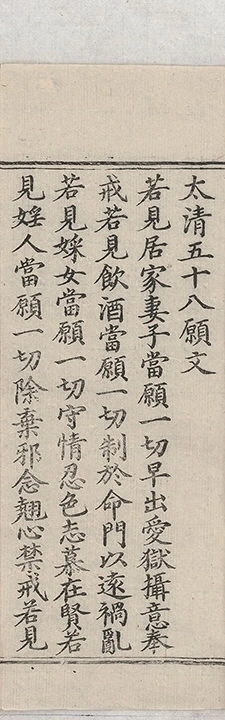 太清五十八願文
若見居家妻子當願一切早出愛獄攝意奉
戒若見飲酒當願一切制於命門以遠禍亂
若見婇女當願一切守情忍色志慕在賢若
見婬人當願一切除棄邪念翹心禁戒若見